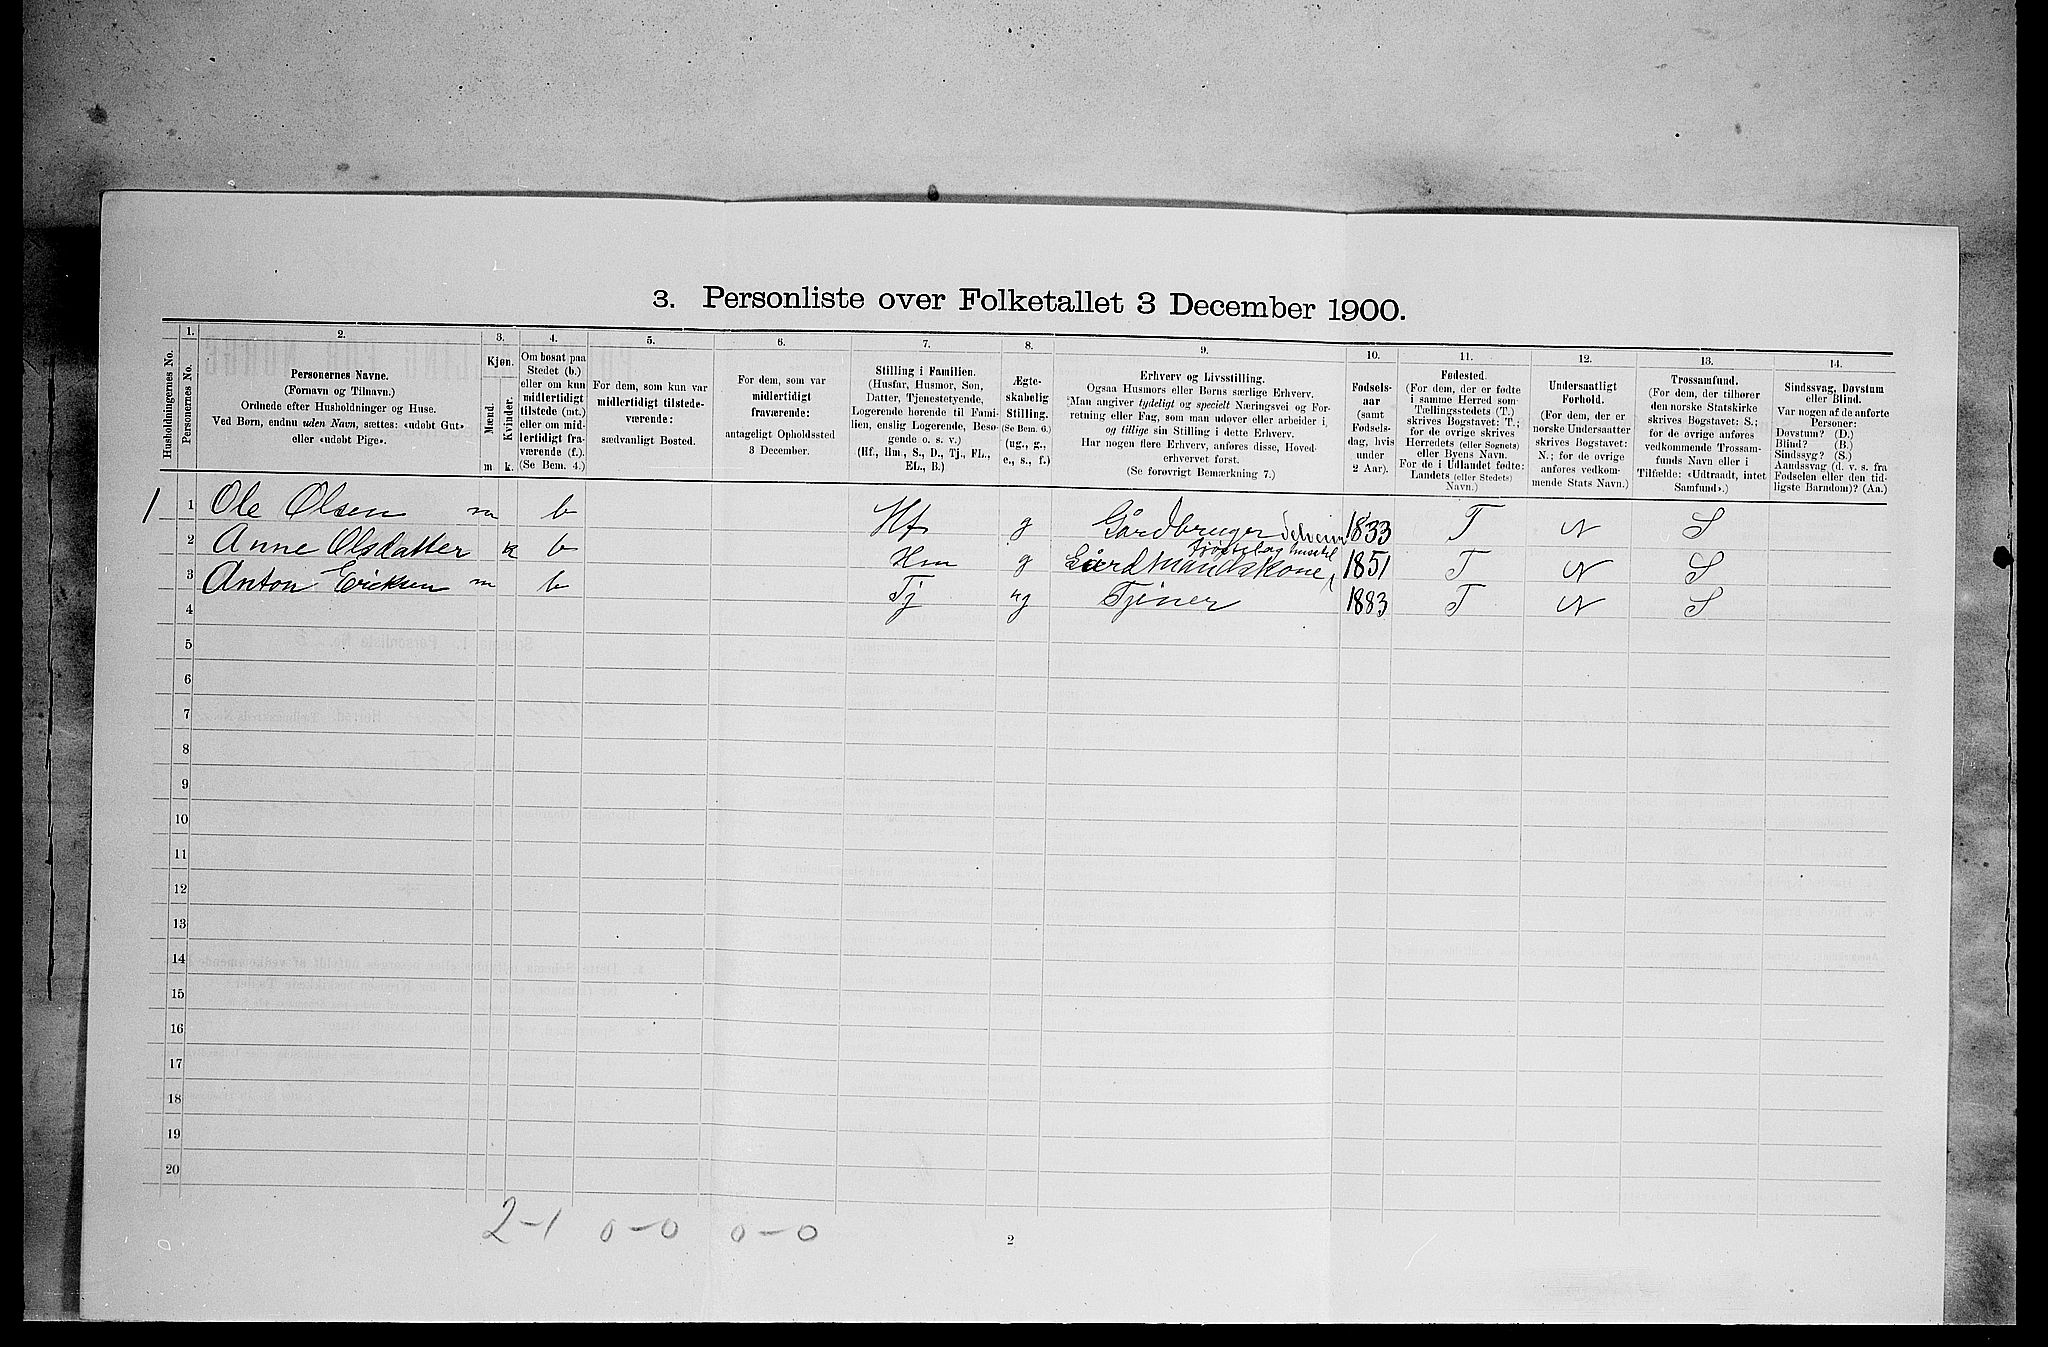 3. Personliste over Folketallet 3 December 1900.
Husholdningernes No.
1.
Personernes No.
2.
Personernes Navne.
(Fornavn og Tilnavn.)
Ordnede efter Husholdninger og Huse.
Ved Børn, endnu uden Navn, sættes: «udøbt Gut»
eller «udøbt Pige».
3.
Kjøn.
Mænd.
Kvinder.
m k.
4.
Om bosat paa
Stedet (b.)
eller om kun
midlertidigt
tilstede (mt.)
eller om mid-
lertidigt fra-
værende (f.).
(Se Bem. 4.)
5.
For dem, som kun var
midlertidigt tilstede-
værende:
sædvanligt Bosted.
6.
For dem, som var
midlertidigt
fraværende:
antageligt Opholdssted
3 December.
7.
Stilling i Familien.
(Husfar, Husmor, Søn,
Datter, Tjenestetyende,
Logerende hørende til Fami-
lien, enslig Logerende, Besø-
gende o. s. v.)
(Hf., Hm., S., D., Tj., FL.,
EL., B.)
8.
Ægte-
skabelig
Stilling.
(Se Bem. 6.)
(ug., g.,
e., s., f.)
9.
Erhverv og Livsstilling.
Ogsaa Husmors eller Børns særlige Erhverv.
Man angiver tydeligt og specielt Næringsvei og For-
retning eller Fag, som man udøver eller arbeider i,
og tillige sin Stilling i dette Erhverv.
Har nogen flere Erhverv, anføres disse, Hoved-
erhvervet først.
(Se forøvrigt Bemærkning 7.)
10.
Fødsels-
aar
(samt
Fødsels-
dag, hvis
under
2 Aar).
11.
Fødested.
(For dem, der er fødte
i samme Herred som
Tællingsstedets (T.)
skrives Bogstavet: T.;
for de øvrige skrives
Herredets (eller Sognets)
eller Byens Navn.
For de i Udlandet fødte:
Landets (eller Stedets)
Navn.)
12.
Undersaatligt
Forhold.
(For dem, der er
norske Undersaatter
skrives Bogstavet:
N.; for de øvrige
anføres vedkom-
mende Stats Navn.)
13.
Trossamfund.
(For dem, der tilhører
den norske Statskirke
skrives Bogstavet: S.;
for de øvrige anføres
vedkommende Trossam-
funds Navn eller i
Tilfælde: «Udtraadt, intet
Samfund».)
14.
Sindssvag, Døvstum
eller Blind.
Var nogen af de anførte
Personer:
Døvstum? (D.)
Blind? (B.)
Sindssyg? (S.)
Aandssvag (d. v. s. fra
Fødselen eller den tid-
ligste Barndom)? (Aa.)
1 1 Ole Olsen m b Hf g Gårdbruger Selveier 1833 T N S
2 Anne Olsdatter k b Hm g Gårdmandskone 1851 T N S
3 Anton Ericksen m b Tj ug Tjener 1883 T N S
4
5
6
7
8
9
10
11
12
13
14
15
16
17
18
19
20
2-1 0-0 0-0
2